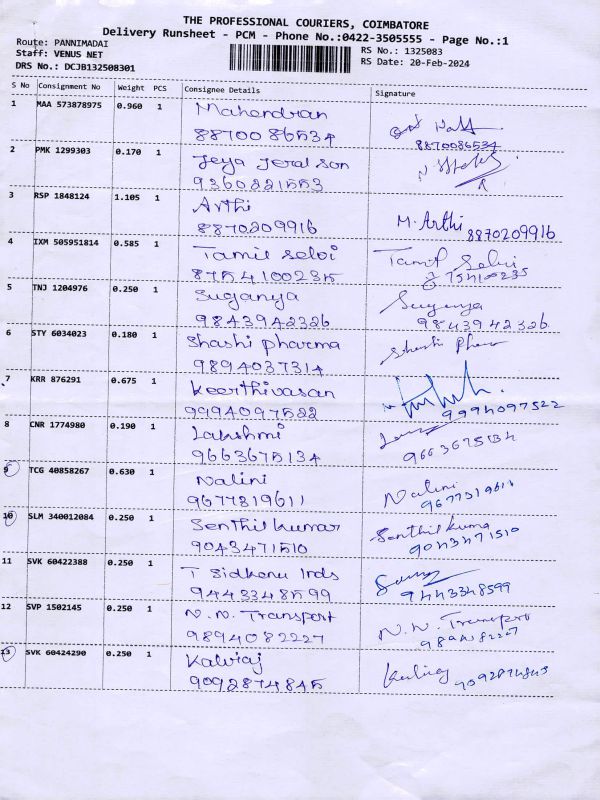 THE PROFESSIONAL COURIERS, COIMBATORE
Delivery Runsheet - PCM - Phone No.:0422-3505555 - Page No.:1
Route: PANNIMADAI
Staff: VENUS NET
DRS No.: DCJB132508301
RS No.: 1325083
RS Date: 20-Feb-2024
S No Consignment No Weight PCS Consignee Details Signature
1 MAA 573878975 0.960 1 Mahendran
8870086534 8870086534
2 PMK 1299303 0.170 1 Jeya Jeral Son
9360221553
3 RSP 1848124 1.105 1 Arthi
8870209916 M. Arthi 8870209916
4 IXM 505951814 0.585 1 Tamil Selvi Tamil Selvi
8754100235 754100235
5 TNJ 1204976 0.250 1 Suganya Suganya
9843942326 9843942326
6 STY 6034023 0.180 1 Shashi pharma Shashi
9894037314
7 KRR 876291 0.675 1 Keerthivasan
9994097522 9994097522
8 CNR 1774980 0.190 1 Lakshmi
9663675134 9663675134
9 TCG 40858267 0.630 1 Nalini Nalini
9677819611 9677819611
10 SLM 340012084 0.250 1 Senthil kumar Senthil kuma
9043471510 9043471510
11 SVK 60422388 0.250 1 T Sidkenu Inds
9443348599 9443348599
12 SVP 1502145 0.250 1 N.N. Transport N.N. Transpro
9894082227 9894082227
13 SVK 60424290 0.250 1 Kaliraj Kaliraj
9092874845 9092874845